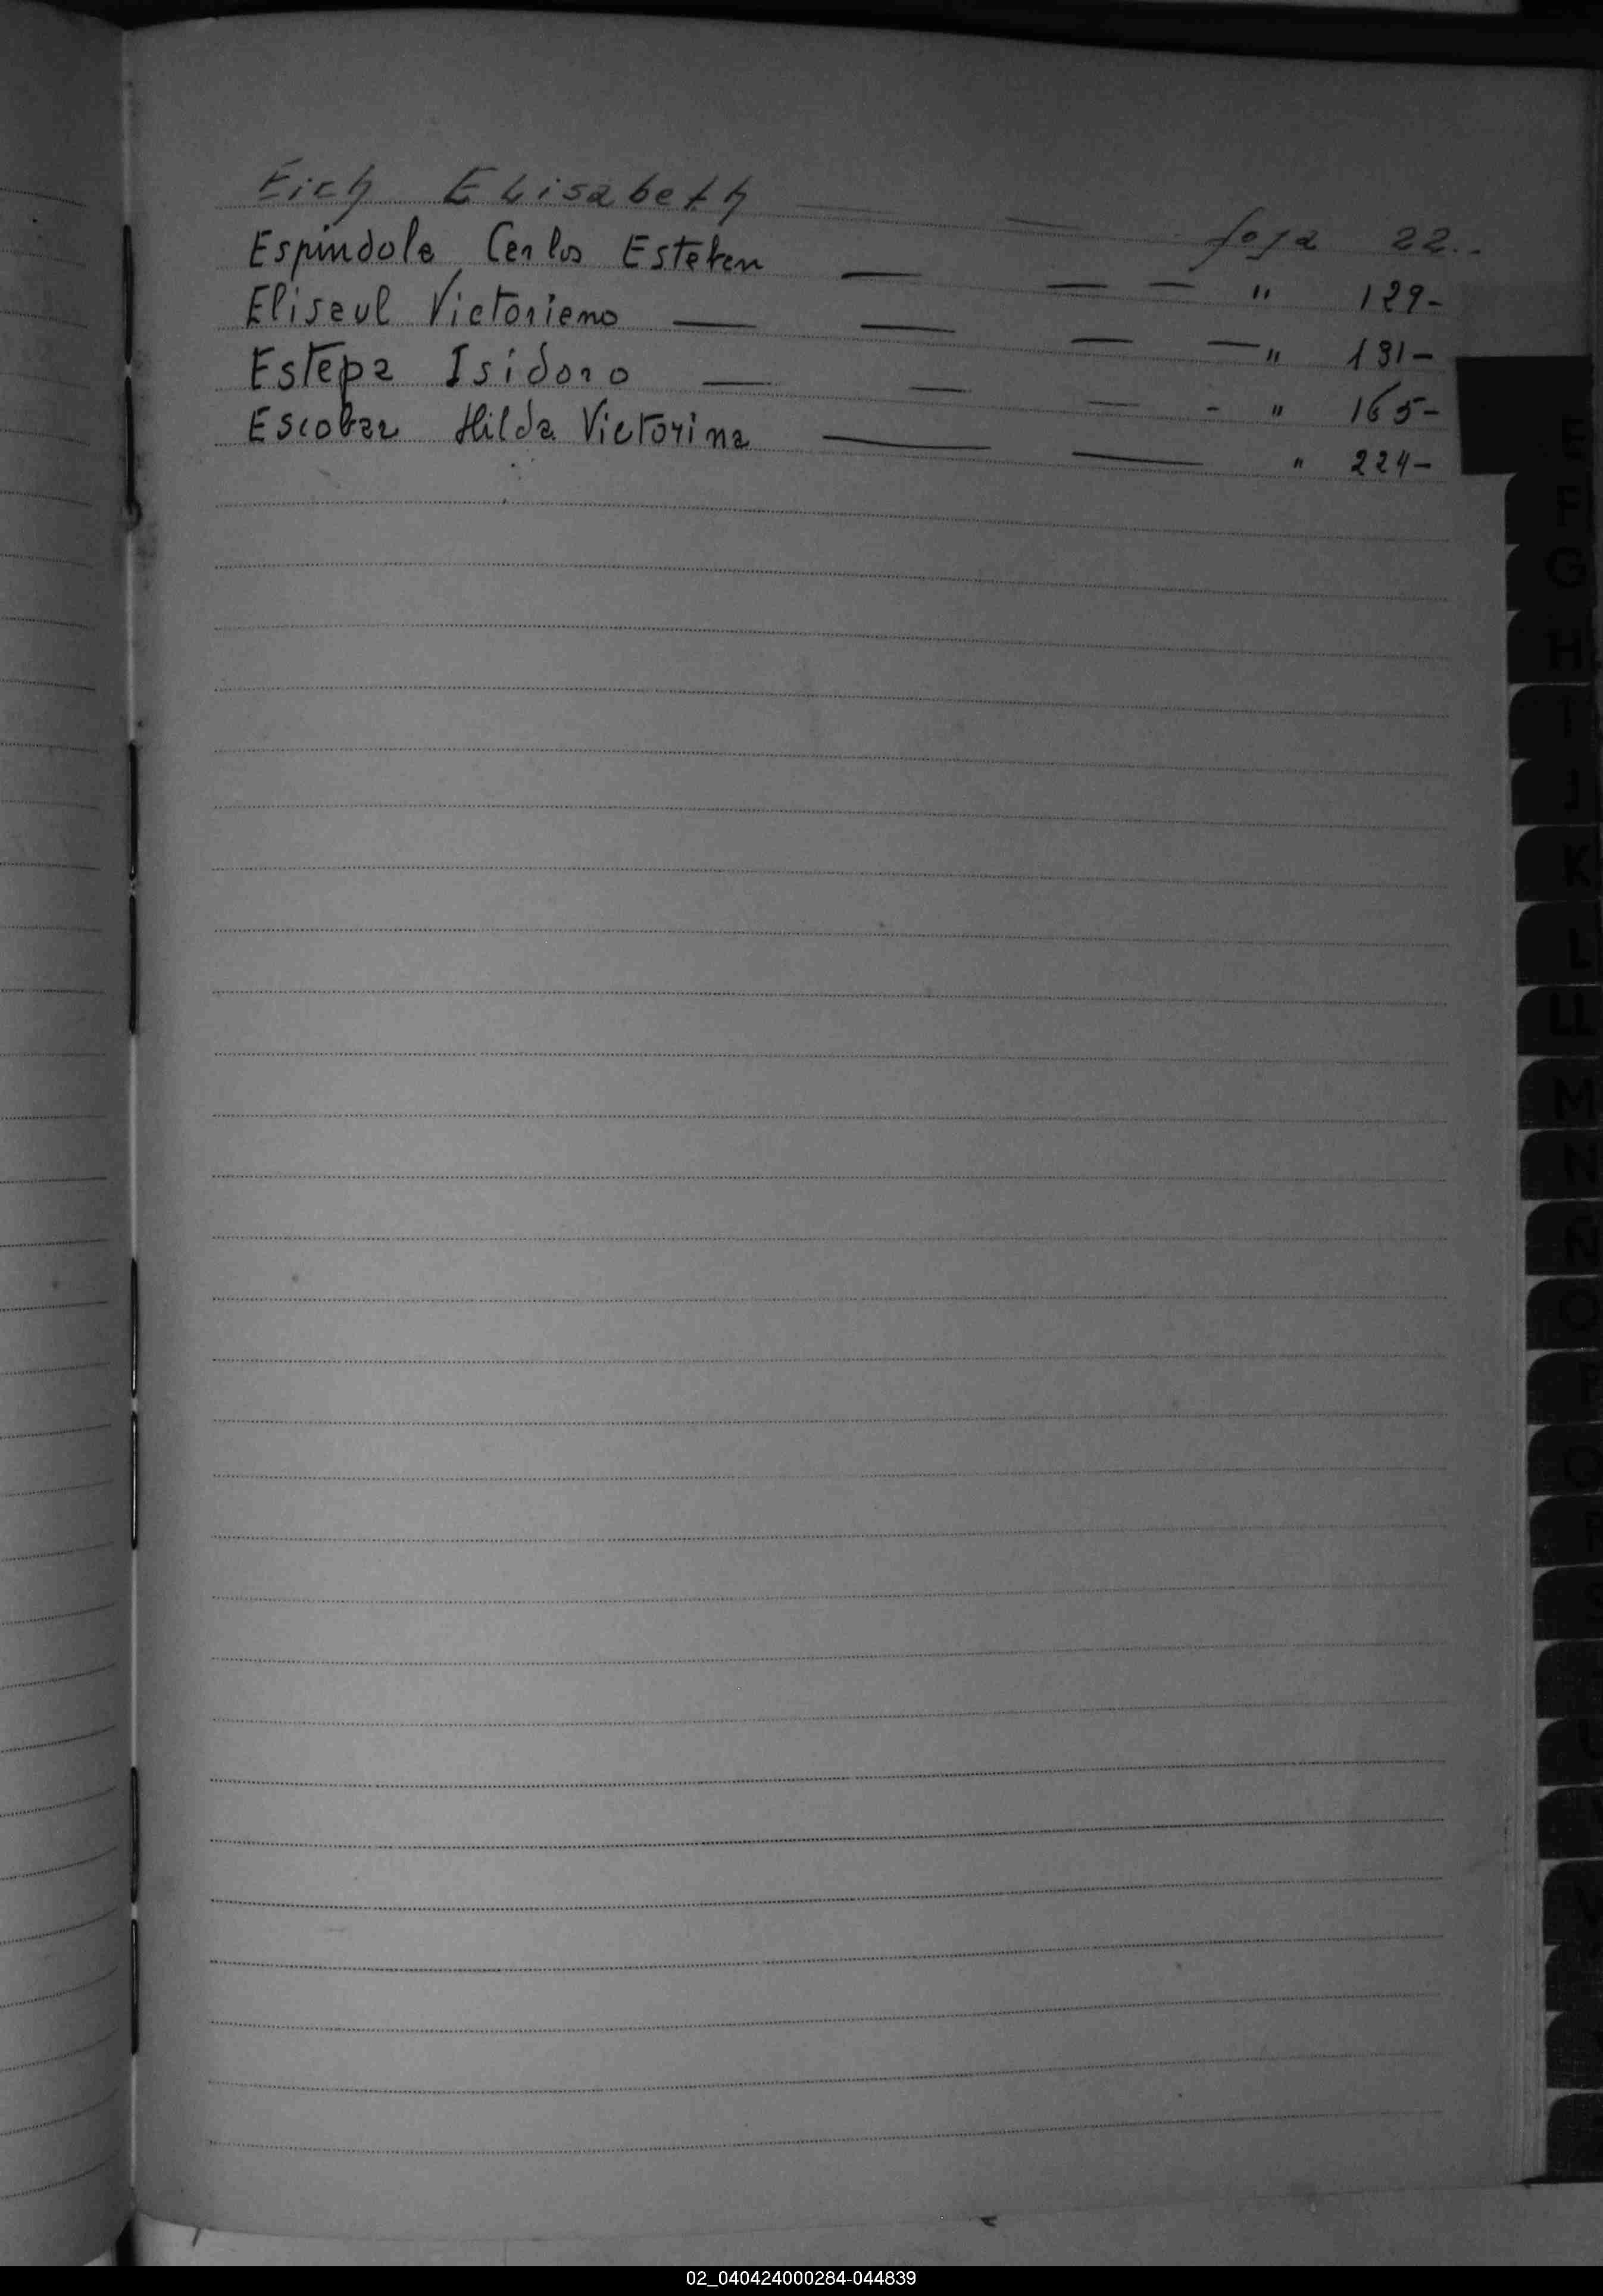 Eich Elisabeth — — foja 22..
Espindola Carlos Esteban — — — " 129-
Eliseul Victoriano — — — — " 131-
Estepa Isidoro — — — - " 165-
Escobar Hilda Victorina — — " 224-
E
F
G
H
I
J
K
L
LL
M
N
Ñ
O
P
Q
R
02_040424000284-044839